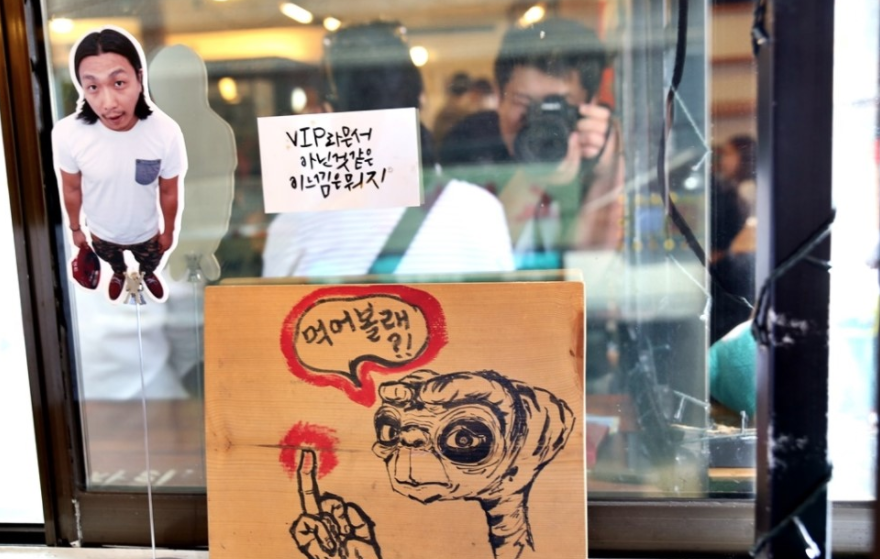 VIP라운서
아닌것같은
이느낌은뭐지!
먹어볼래
?!